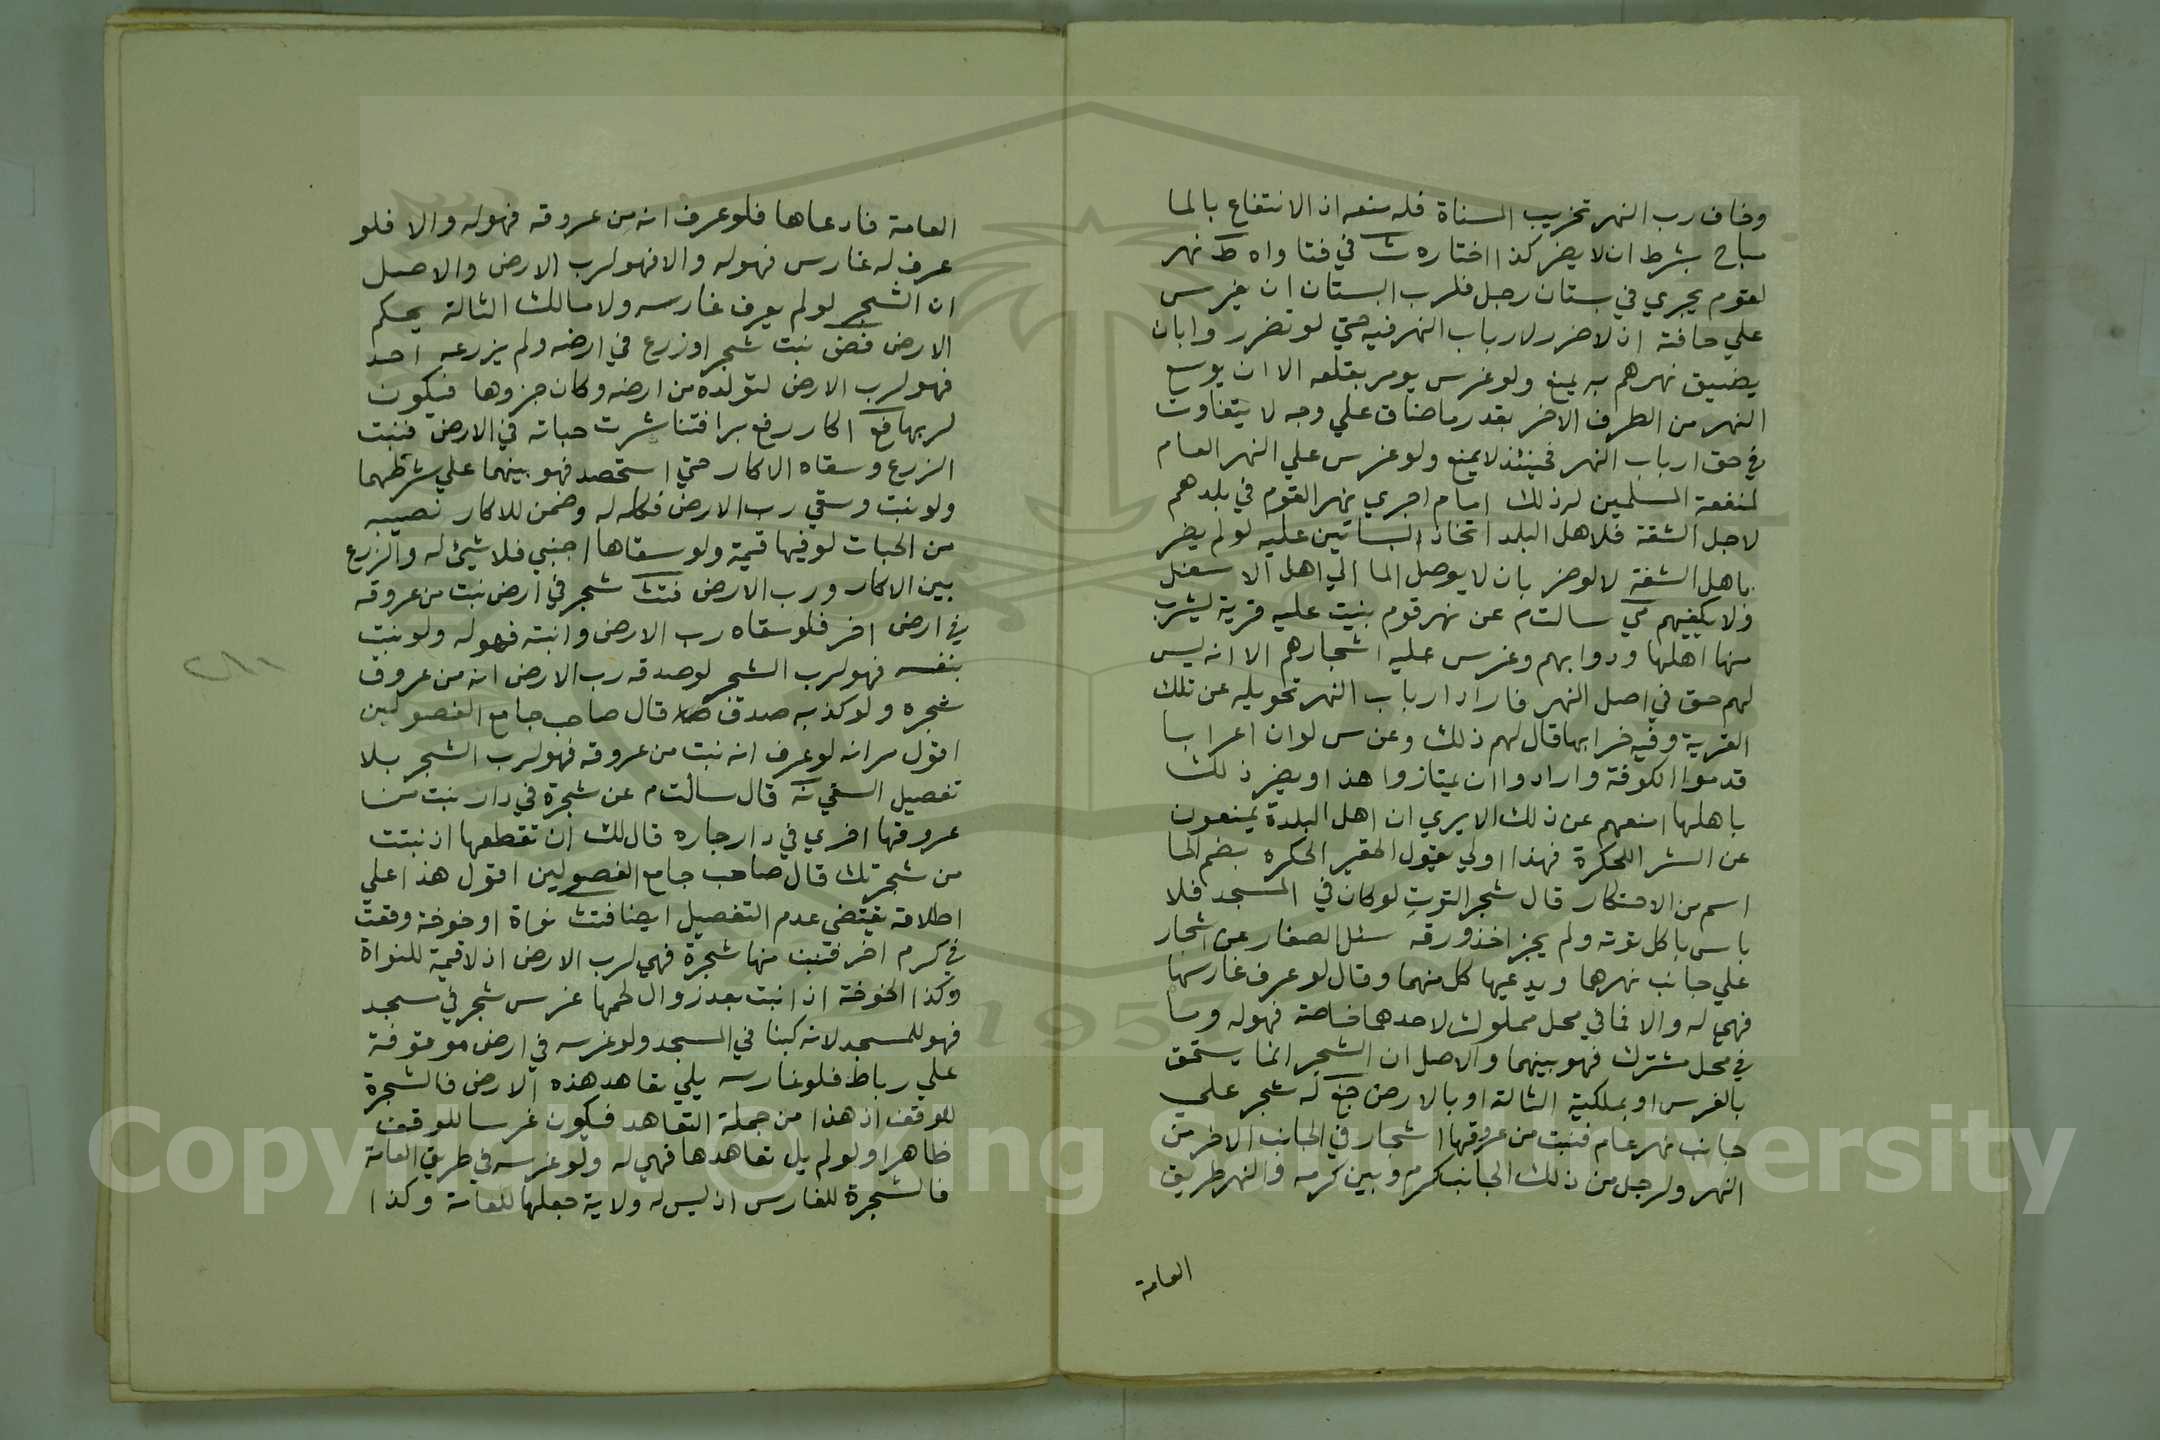 وخاف رب النهر تخريب المسناة فله منعه اذ الانتفاع بالما
مباح بشرط ان لا يضر كذا اختاره ث في فتاواه ط نهر
لقوم يجري في بستان رجل فلرب البستان ان يغرس
علي حافته ان لا ضرر لارباب النهر فيه حتي لو تضرر وابان
يضيق نهرهم به يمنع ولو غرس يومر بقلعه الا ان يوسع
النهر من الطرف الاخر بقدر ما ضاق علي وجه لا يتفاوت
في حق ارباب النهر فحينئذ لا يمنع ولو غرس علي النهر العام
لمنفعة المسلمين له ذلك امام اجري نهر القوم في بلدهم
لاجل الشفة فلاهل البلد اتخاذ البساتين عليه لو لم يضر
باهل الشفة لا لو ضر بان لا يوصل الما الي اهل الاسفل
ولا يكفيهم مي سالت م عن نهر قوم بنيت عليه قرية ليشرب
منها اهلها ودوابهم وغرس عليه اشجارهم الا انه ليس
لهم حق في اصل النهر فاراد ارباب النهر تحويله عن تلك
القرية وفيه خرابها قال لهم ذلك وعن س لو ان اعرابا
قدموا الكوفة وارادوا ان يمتازوا هذا ويضر ذلك
باهلها امنعهم عن ذلك الا يري ان اهل البلدة يمنعون
عن الشر الحكرة فهذا اولي يقول الحقير الحكره بضم الحا
اسم من الاحتكار قال شجر التوت لو كان في المسجد فلا
باس باكل توته ولم يجز اخذ ورقه سئل الصفار عن اشجار
علي جانب نهرها ويدعيها كل منهما وقال لو عرف غارسها
فهي له والا فما في محل مملوك لاحدهما خاصة فهو له وما
في محل مشترك فهو بينهما والاصل ان الشجر انما يستحق
بالغرس او بملكية الثالة او بالارض جغ له شجر علي
جانب نهر عام فنبت من عروقها اشجار في الجانب الاخر من
النهر ولرجل من ذلك الجانب كرم وبين كرمه والنهر طريق
العامة
العامة فادعاها فلو عرف انه من عروقه فهو له والا فلو
عرف له غارس فهو له والا فهو لرب الارض والاصل
ان الشجر لو لم يعرف غارسه ولا مالك الثالة يحكم
الارض فض نبت شجر او زرع في ارضه ولم يزرعه احد
فهو لرب الارض لتولده من ارضه وكان جزوها فيكون
لربها فع اكار رفع برا فتناشرت حباته في الارض فنبت
الزرع وسقاه الاكار حتي استحصد فهو بينهما علي شرطهما
ولو نبت وسقي رب الارض فكله له وضمن للاكار نصيبه
من الحبات لو فيها قيمة ولو سقاها اجنبي فلا شيئ له والزرع
بين الاكار ورب الارض فتث شجر في ارض نبت من عروقه
في ارض اخر فلو سقاه رب الارض وانبته فهو له ولو نبت
بنفسه فهو لرب الشجر لو صدقه رب الارض انه من عروق
شجره ولو كذبه صدق قال صاحب جامع الفصولين
اقول مر انه لو عرف انه نبت من عروقه فهو لرب الشجر بلا
تفصيل السقي نه قال سالت م عن شجرة في دار نبت من
عروقها اخري في دار جاره قال لك ان تقطعها اذ نبتت
من شجرتك قال صاحب جامع الفصولين اقول هذا علي
اطلاقه يقتضي عدم التفصيل ايضا فتث نواة او خوخة وقعت
في كرم اخر فنبت منها شجرة فهي لرب الارض اذ لا قيمة للنواة
وكذا الخوخة اذا نبت بعد زوال لحمها غرس شجر في مسجد
فهو للمسجد لانه كبنا في المسجد ولو غرسه في ارض موقوفة
علي رباط فلو غارسه يلي تعاهد هذه الارض فالشجرة
للوقف اذ هذا من جملة التعاهد فيكون غرسا للوقف
ظاهرا ولو لم يل تعاهدها فهي له ولو غرسه في طريق العامة
فالشجرة للغارس اذ ليس له ولاية جعلها للعامة وكذا
٢٨١
1957
Copyright © King Saud University